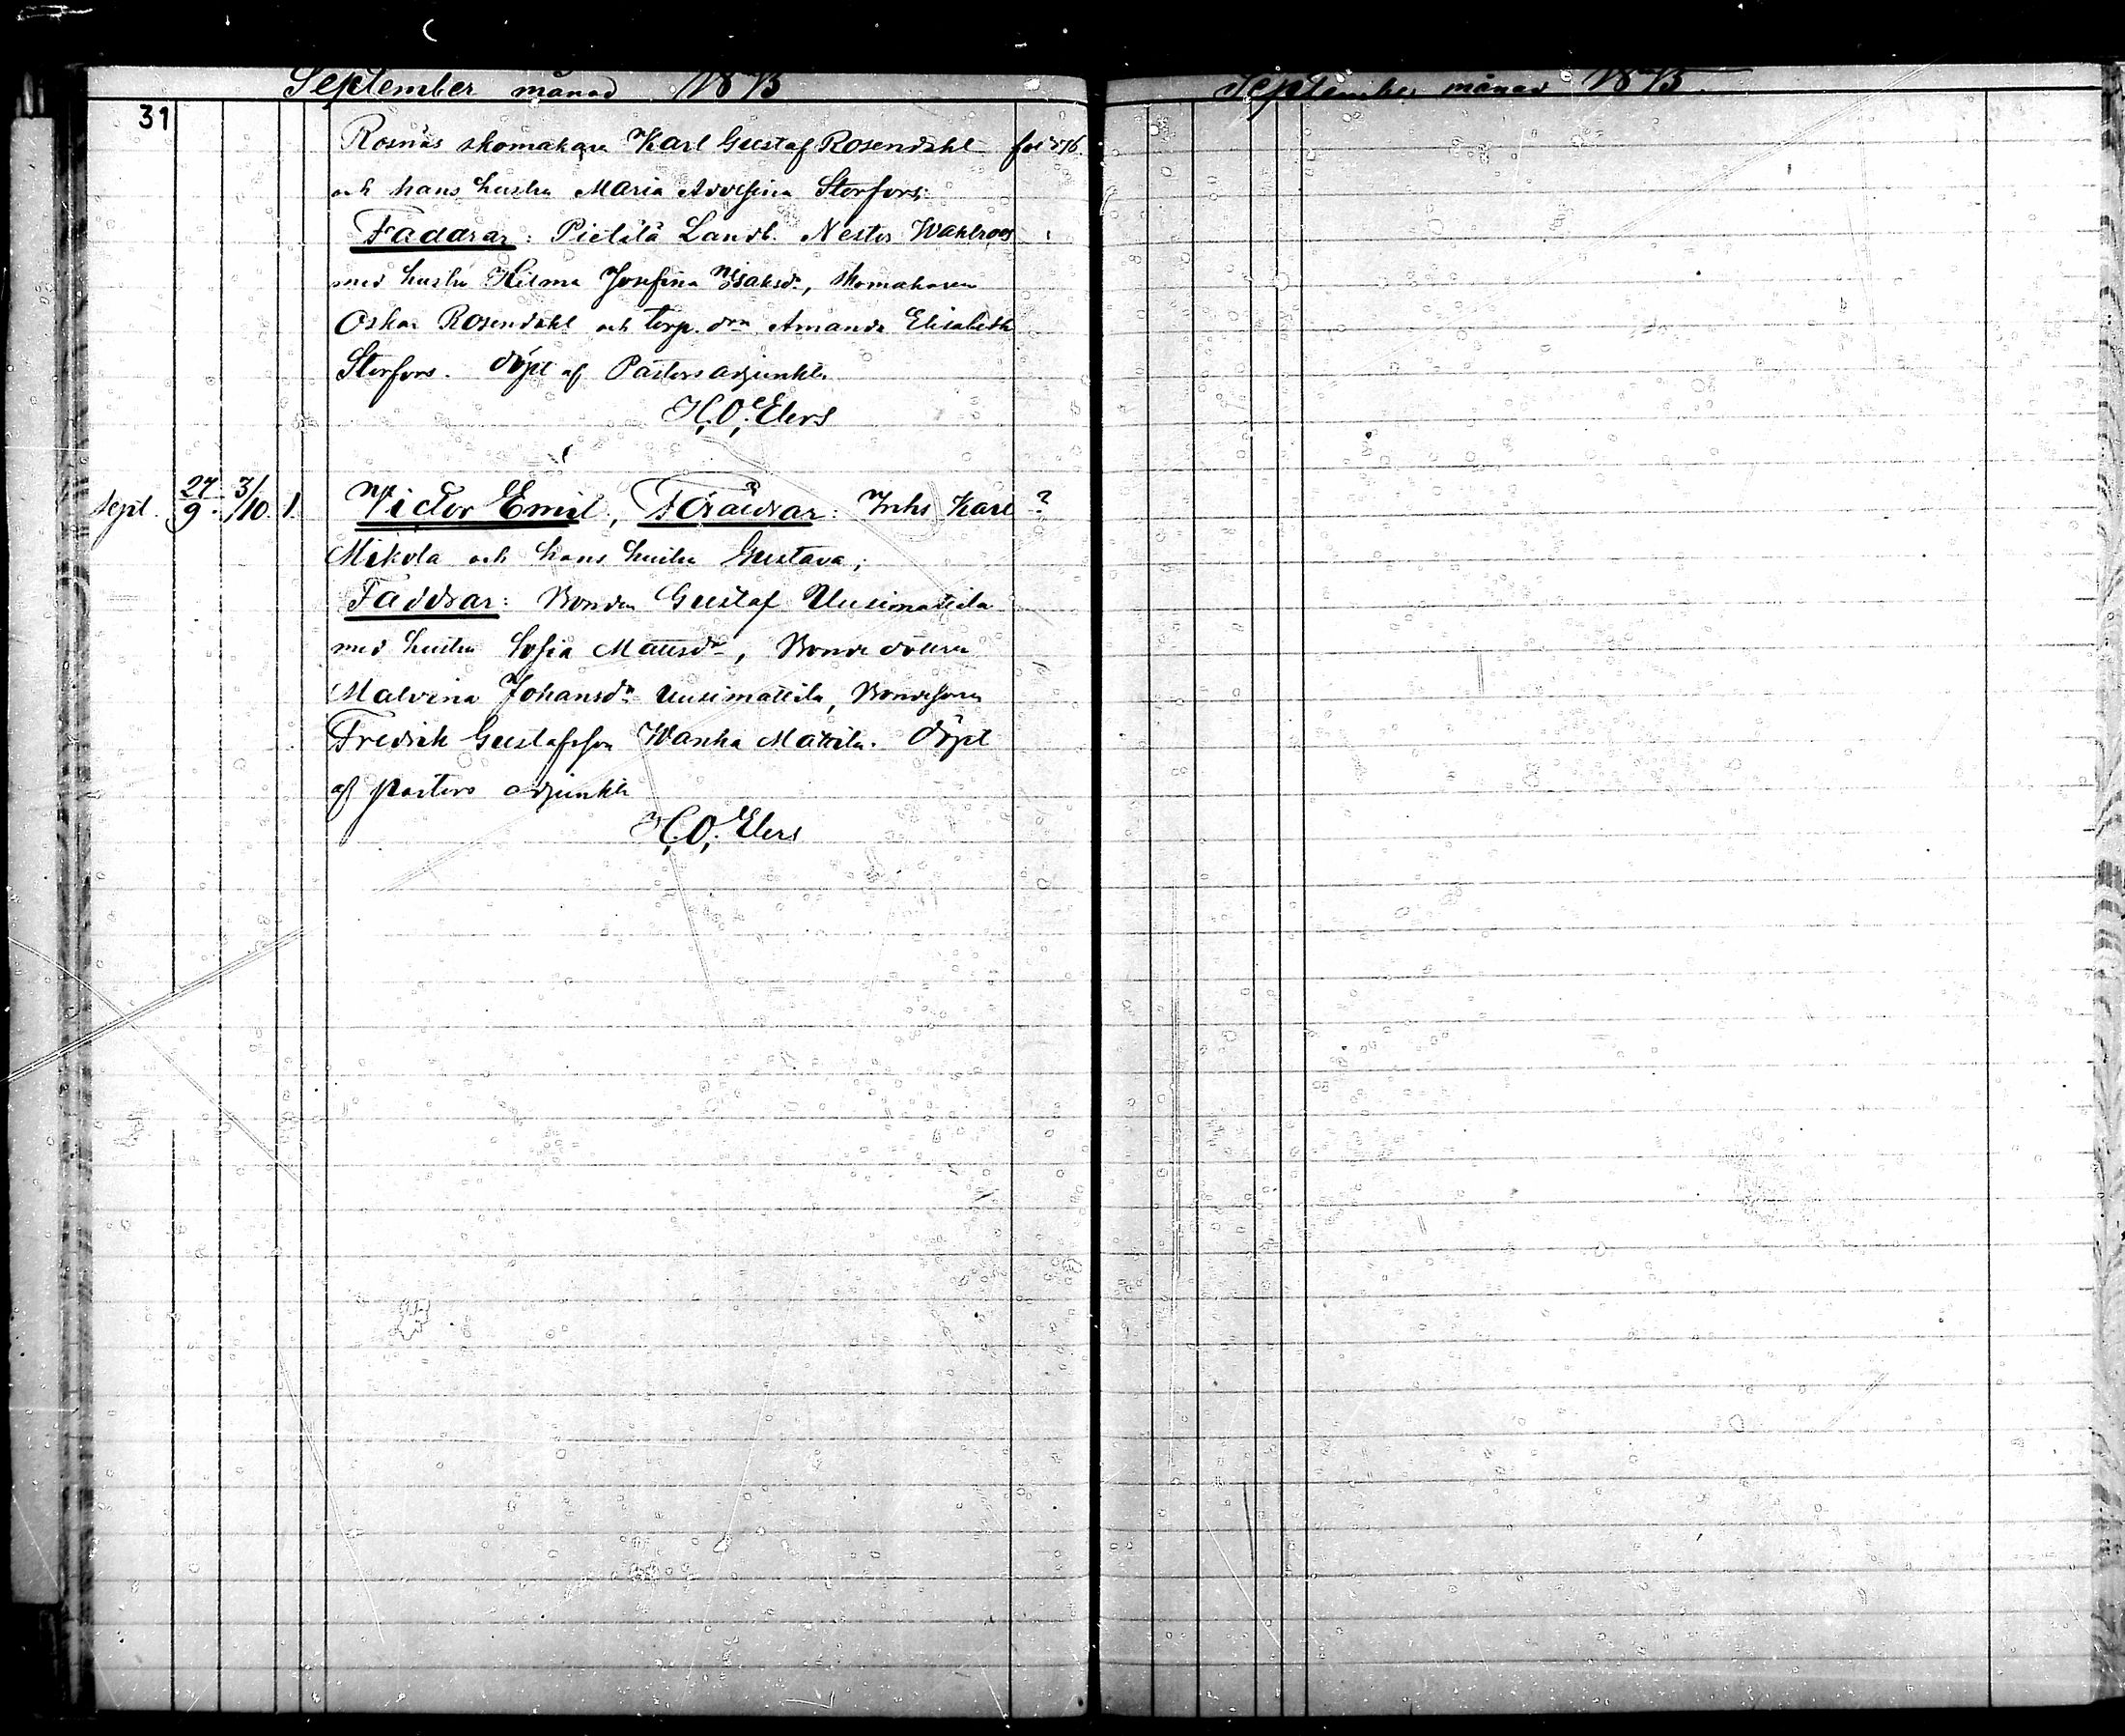 September månad 1875
31
Rosnäs skomakare Karl Gustaf Rosendahl fol 576.
och hans hustru Maria Adolfina Storfors;
Faddrar: Pietilä Landb. Nestor Wahlroos
med hustru Hilma Josefina Isaksdr, skomakaren
Oskar Rosendahl och torp. drn Amanda Elisabeth
Storfors. döpt af Pastorsadjunkten
H. O. Elers
Sept. 27/9. 3/10. 1. Victor Emil, Föräldrar: Inhs Karl ?
Mikola och hans hustru Gustava;
Faddrar: Bonden Gustaf Uusimattila
med hustru Sofia Mattsdr, Bonde dottern
Malvina Johansdr Uusimattila, Bondesonen
Fredrik Gustafsson Wanha Mattila. döpt
af pastors adjunkten
H. O. Elers
September månad 1875.